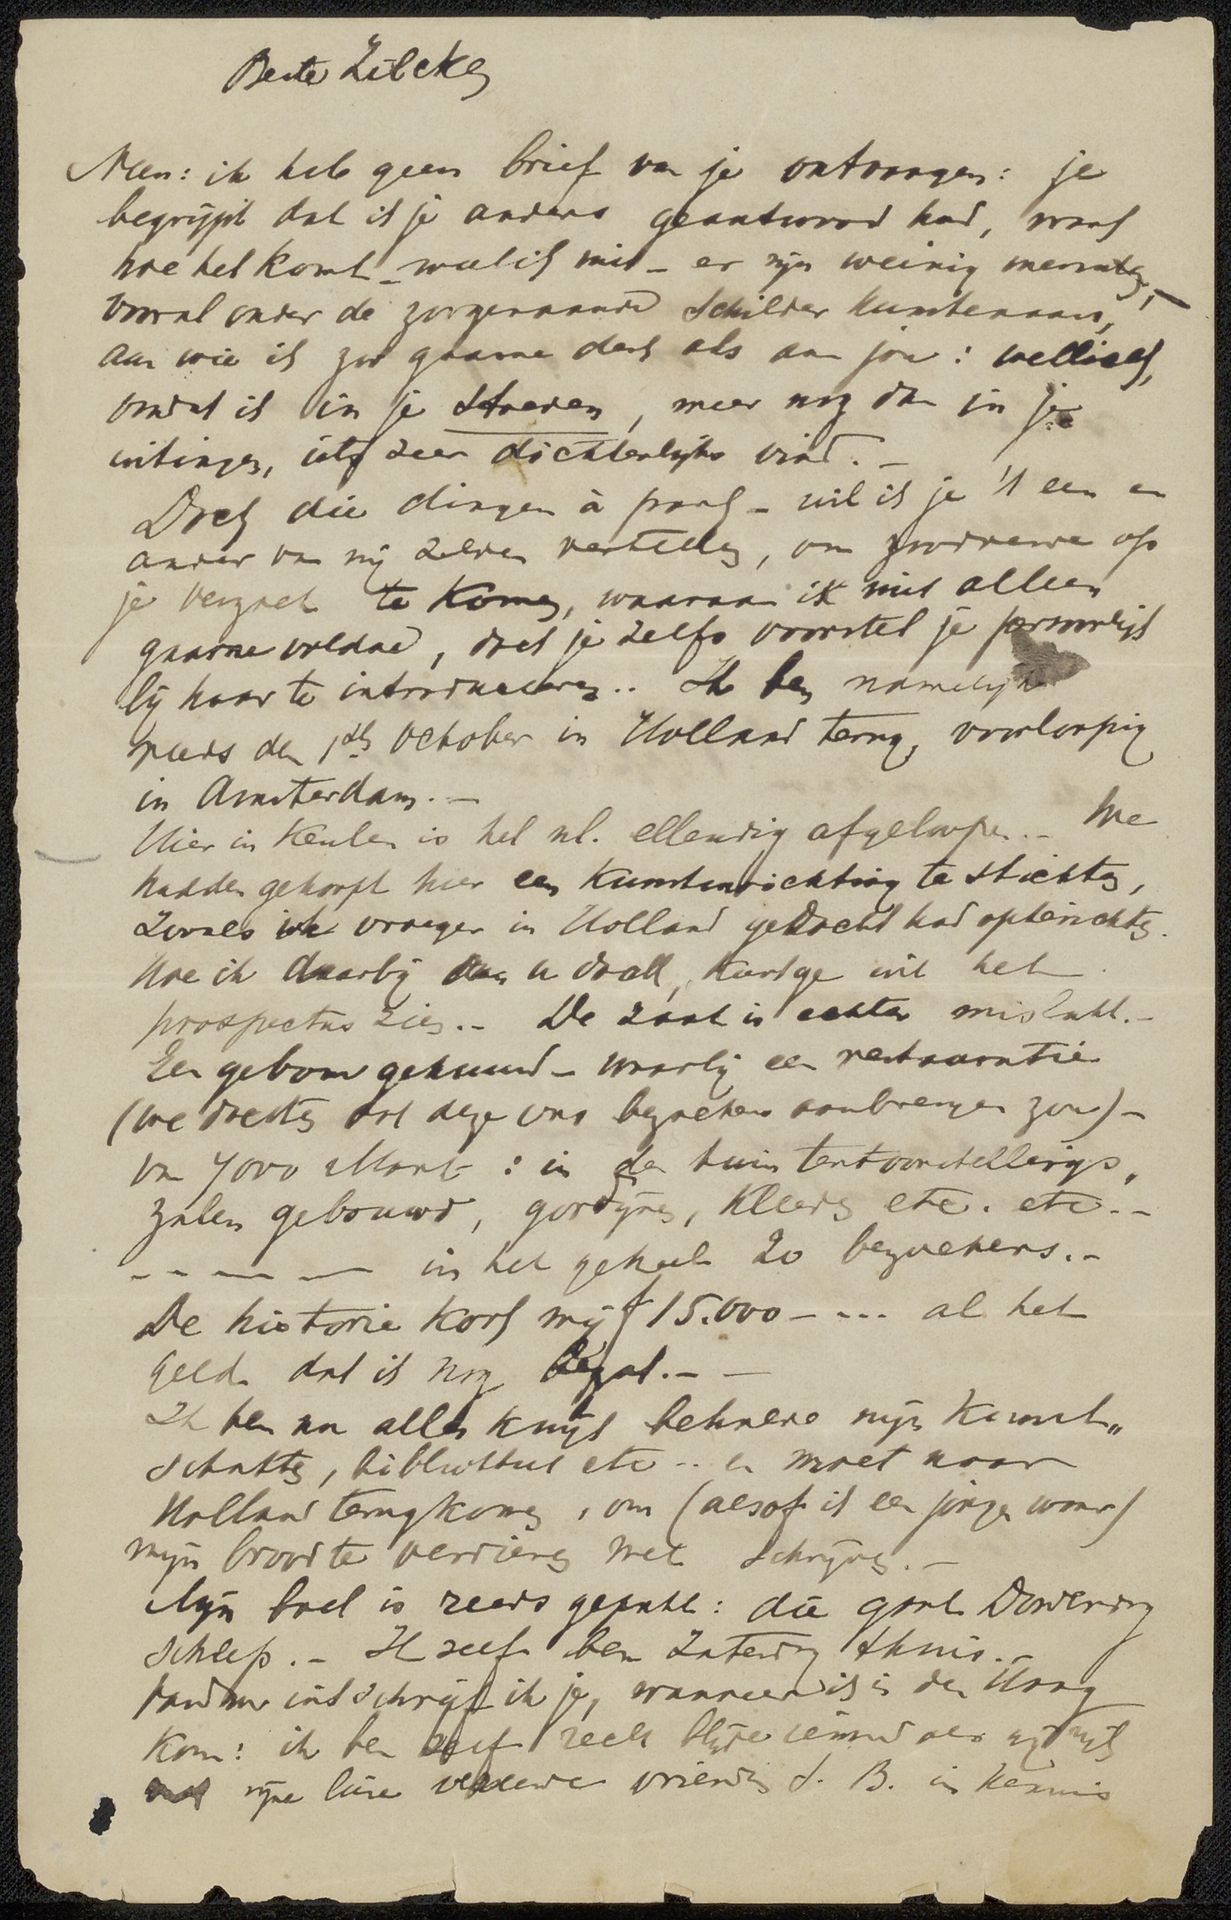 Beste Zilcken
Neen: ik heb geen brief van je ontvangen: je
begrijpt dat ik je anders geantwoord had, want
hoe het komt weet ik niet – er zijn weinig menschen,
vooral onder de zoogenaamde Schilder kunstenaars,
aan wie ik zoo gaarne denk als aan jou: wellicht,
omdat ik in je streven, meer nog dan in je
uitingen, iets zeer dichterlijks vind. –
Doch die dingen à part – wil ik je 't een en
ander van mij zelven vertellen, om zoodoende op
je verzoek te komen, waaraan ik niet alleen
gaarne voldoe, doch je zelfs voorstel je persoonlijk
bij haar te introduceeren.. Ik ben namelijk
reeds den 1sten October in Holland terug, voorloopig
in Amsterdam. –
Hier in Keulen is het nl. ellendig afgeloopen. – We
hadden gehoopt hier een Kunstinrichting te stichten,
zooals ik vroeger in Holland gedacht had opterichten.
Hoe ik daarbij dacht, kunt ge uit het
prospectus zien. – De zaak is echter mislukt. –
Een gebouw gehuurd – waarbij een restauratie
(we dachten dat deze ons bezoekers aanbrengen zou) –
van 7000 Mark: in den tuin tentoonstellings„
zalen gebouwd, gordijnen, kleeden etc. etc. –
– – – – – in het geheel 20 bezoekers. –
De historie kost mij f 15.000 – ... al het
geld dat ik nog bezat. – –
Ik ben nu alles kwijt behalve mijn Kunst„
schatten, bibliotheek etc .. en moet naar
Holland terugkomen, om (alsof ik een jongen waar)
mijn brood te verdienen met schrijven. –
Mijn boel is reeds gepakt: die gaat Donderdag
scheep. – Ik zelf ben Zaterdag thuis. –
schrijf ik je, wanneer ik in den Haag
kom: ik ben zelf zeer blijde iemand als
mijne lieve vriendin S. B. in kennis